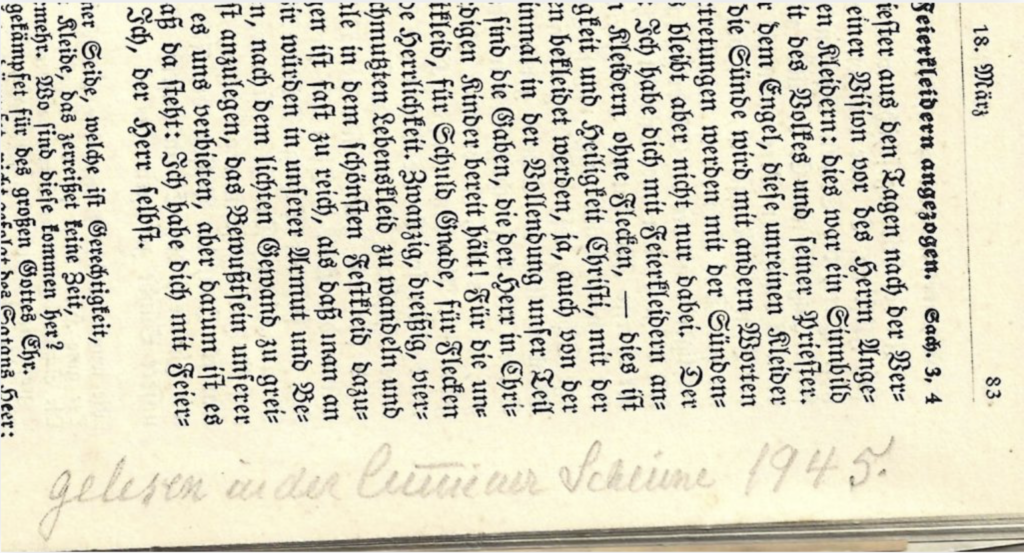 18. März 83.
Feierkleidern angezogen. Sach. 3, 4
iester aus den Tagen nach der Ver-
einer Vision vor des Herrn Ange-
en Kleidern: dies war ein Sinnbild
it des Volkes und seiner Priester.
r dem Engel, diese unreinen Kleider
die Sünde wird mit andern Worten
tretungen werden mit der Sünden-
bleibt aber nicht nur dabei. Der
: Ich habe dich mit Feierkleidern an-
Kleidern ohne Flecken, — dies ist
gkeit und Heiligkeit Christi, mit der
n bekleidet werden, ja, auch von der
inmal in der Vollendung unser Teil
sind die Gaben, die der Herr in Chri-
digen Kinder bereit hält! Für die un-
tkleid, für Schuld Gnade, für Flecken
e Herrlichkeit. Zwanzig, dreißig, vier-
chmutzten Lebenskleid zu wandeln und
le in dem schönsten Festkleid dazu-
en ist fast zu reich, als daß man an
ir würden in unserer Armut und Be-
n, nach dem lichten Gewand zu grei-
st anzulegen, das Bewußtsein unserer
es uns verbieten, aber darum ist es
aß da steht: Ich habe dich mit Feier-
Ich, der Herr selbst.
ner Seide, welche ist Gerechtigkeit,
Kleide, das zerreißet keine Zeit,
mehr. Wo sind diese kommen her?
gekämpfet für des großen Gottes Ehr.
des Satans Heer:
gelesen in der Scheune 1945.